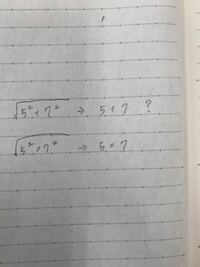 √5²+7² ⇒ 5+7 ?
√5²×7² ⇒ 5×7